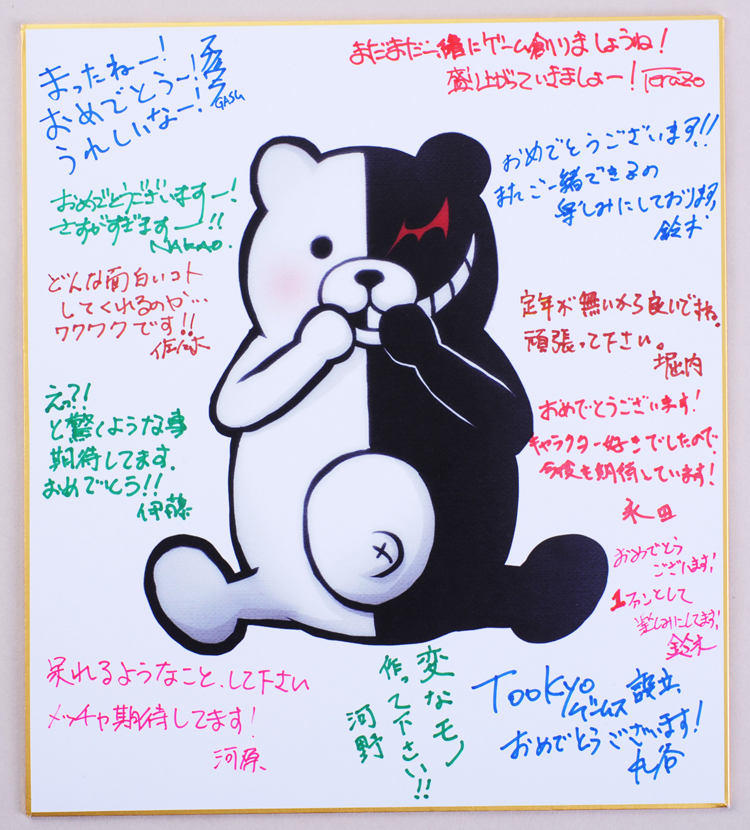 まったねー!
おめでとうー!
うれしいなー!
GASU
まだまだ一緒にゲーム創りましょうね!
盛り上がっていきましょー! Terazo
おめでとうございますー!
さすがすぎますー!!
NAKAO.
おめでとうございます!!
またご一緒できるの
楽しみにしております
鈴木
どんな面白いコト
してくれるのか…
ワクワクです!!
佐々木
定年が無いから良いですね。
頑張って下さい。
堀内
えっ?!
と驚くような事
期待してます.
おめでとう!!
伊藤
おめでとうございます!
キャラクター好きでしたので、
今後も期待しています!
永田
おめでとう
ございます!
1ファンとして
楽しみにしてます!
鈴木
呆れるようなこと、して下さい
メッチャ期待してます!
河原
変なモノ
作って下さい!!
河野
TOOKYO
ゲームス 設立
おめでとうございます!
丸谷